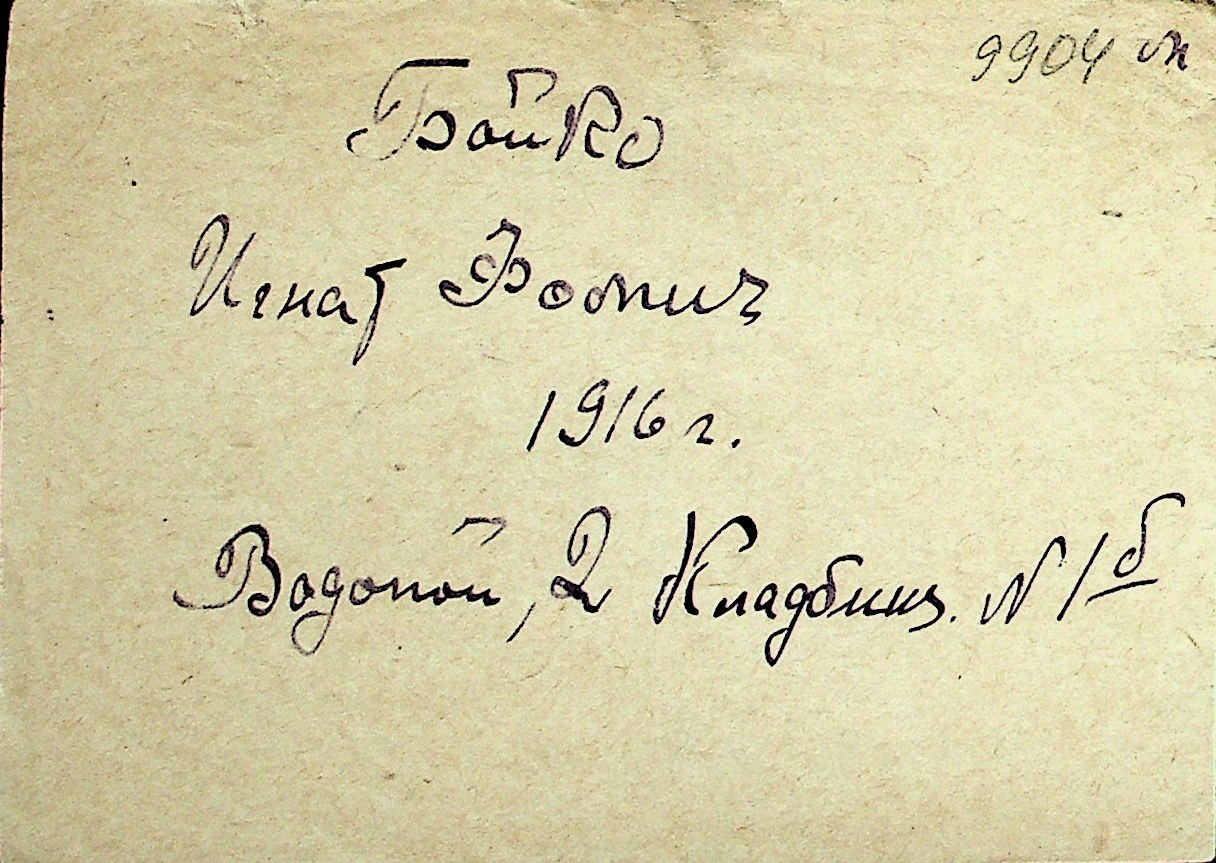 9904 м
Бойко
Игнат Фомич
1916 г.
Водопой, 2 Кладбищ. № 1б